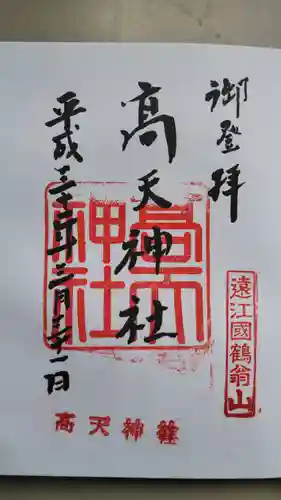 御登拝
髙天神社
平成三十一年三月三十一日
高天
神社
遠江國鶴翁山
高天神